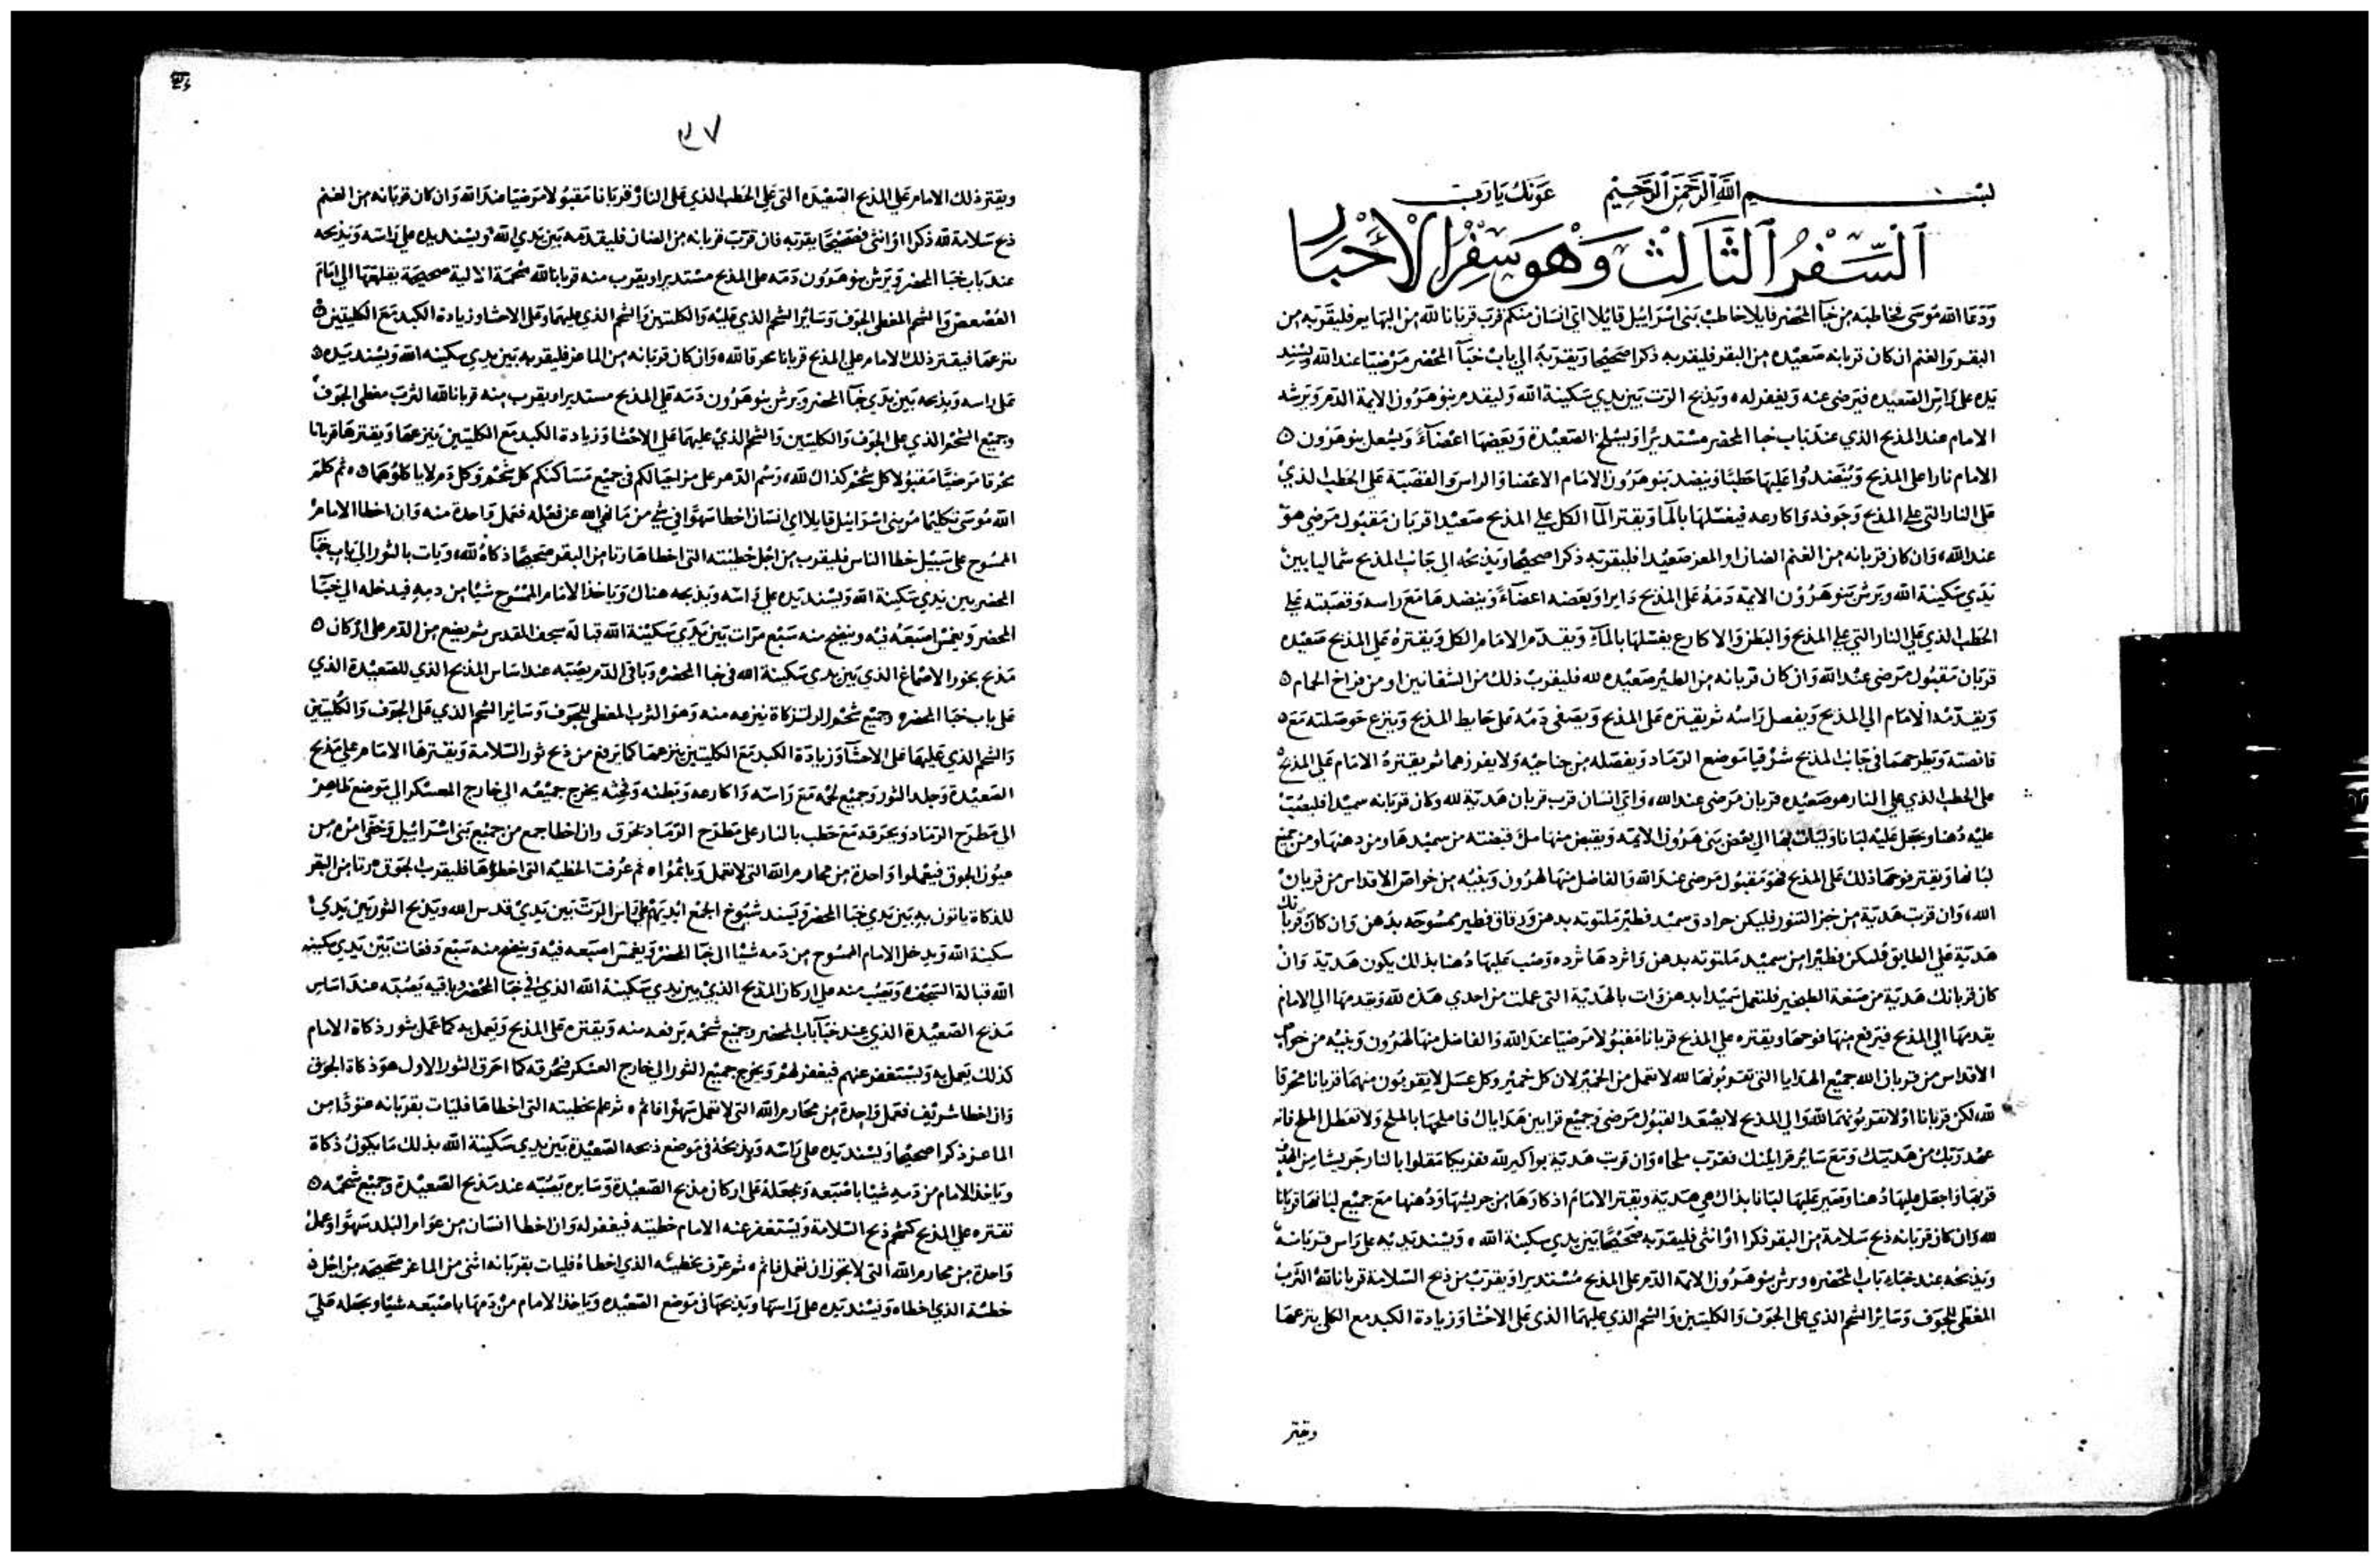 بسم الله الرحمن الرحيم عونك يا رب
السفر الثالث وهو سفر الأحبار
ودعا الله موسى مخاطبه من خبآ المحضر قايلا خاطب بنى اسرائيل قائلا اي انسان منكم قرب قربانا لله من البهايم فليقربه من
البقر والغنم ان كان قربانه صعيده من البقر فليقدمه ذكرا صحيحا ويقربه الي باب خبآ المحضر مرضيا عند الله ويسند
يده على راس الصعيده فيرضى عنه ويغفر له ويذبح الرت بين يدي سكينة الله وليقدم بنو هرون الايمة الدم ويرشه
الامام عند المذبح الذي عند باب خبا المحضر مستديرا ويسلخ الصعيدة ويعضها اعضآءً ويشعل بنو هرون
الامام نارا على المذبح وينضدوا عليها حطبا وينضد بنو هرون الامام الاعضا والراس والقصبة على الحطب الذي
على النار التي علي المذبح وجوفه واكارعه فيغسلها بالمآ ويقتر الما الكل علي المذبح صعيدا قربان مقبول مرضي هو
عند الله وان كان قربانه من الغنم الضان او المعز صعيدا فليقربه ذكرا صحيحا ويذبحه الى جانب المذبح شماليا بين
يدي سكينة الله ويرش بنو هرون الايمة دمه على المذبح دايرا ويعضه اعضآءً وينضدها مع راسه وقصبته علي
الحطب الذي علي النار التي علي المذبح والبطن والاكارع يغسلها بالمآء ويقدم الامام الكل ويقتره علي المذبح صعيده
قربان مقبول مرضى عند الله وان كان قربانه من الطير صعيده لله فليقرب ذلك من الشفانين او من فراخ الحمام
ويقدمه الامام الي المذبح ويفصل راسه ثم يقتره على المذبح ويصفى دمه على حايط المذبح وينزع حوصلته مع
قانصته ويطرحهما في جانب المذبح شرقيا موضع الرماد ويفصله من جناحيه ولا يفرزهما ثم يقتره الامام علي المذبح
على الحطب الذي علي النار هو صعيده قربان مرضى عند الله واي انسان قرب قربان هدية لله وكان قربانه سميدا فليصب
عليه دهنا ويجعل عليه لبانا وليات بها الي بعض بني هرون الايمه ويقبض منها مل قبضته من سميدها ومن دهنها ومن جميع
لبانها ويقتر نوحها ذلك على المذبح فهو مقبول مرضى عند الله والفاضل منها لهرون وبنيه من خواص الاقداس من قربان
الله وان قربت هدية من خبز التنور فليكن جرادق سميد فطير ملتوته بدهن ورقاق فطير ممسوحه بدهن وان كان قربانك
هدية علي الطابق فليكن فطيرا من سميد ملتوته بدهن واثردها ثرده وصب عليها دهنا بذلك يكون هدية وان
كان قربانك هدية من صنعة الطنجير فلتعمل سميدا بدهن وات بالهدية التى عملت من احدي هذه لله ويقدمها الي الامام
يقدمها الي المذبح فيرفع منها نوحها ويقتره علي المذبح قربانا مقبولا مرضيا عند الله والفاضل منها لهرون وبنيه من خواص
الاقداس من قربان الله جميع الهدايا التي تقربونها لله لا تعمل من الخمير لان كل خمير وكل عسل لا يقربون منهما قربانا محرقا
لله لكن قربانا اولا تقربونهما لله والي المذبح لا يصعد القبول مرضى وجميع قرابين هداياك فاملحها بالملح ولا تعطل الملح فانه
عهد ربك من هديتك ومع ساير قرابينك فقرب ملحا وان قربت هدية بواكير لله ففريكا مقلوا بالنار جريشا من الهدية
قربها واجعل عليها دهنا وصير عليها لبانا بذاك هي هدية ويقتر الامام اذكارها من جريشها ودهنها مع جميع لبانها قربانا
لله وان كان قربانه ذبح سلامة من البقر ذكرا او انثى فليقربه صحيحا بين يدي سكينة الله ويسند يديه على راس قربانه
ويذبحه عند خباء باب المحضر ويرش بنو هرون الايمة الدم على المذبح مستديرا ويقرب من ذبح السلامة قربانا لله الثرب
المغطى للجوف وساير الشحم الذي على الجوف والكليتين والشحم الذي عليهما الذى على الاحشا وزيادة الكبد مع الكلى ينزعها
ويقتر
٩٧
ويقتر ذلك الامام علي المذبح الصعيده التى علي الحطب الذي على النار قربانا مقبولا مرضيا عند الله وان كان قربانه من الغنم
ذبح سلامة لله ذكرا او انثى فصحيحا يقربه فان قرب قربانه من الضان فليقدمه بين يدي الله ويسند يده علي راسه ويذبحه
عند باب خبا المحضر ويرش بنو هرون دمه على المذبح مستديرا ويقرب منه قربانا لله شحمة الالية صحيحة يقلعها الي امام
العصعص والشحم المغطى الجوف وساير الشحم الذي عليه والكليتين والشحم الذي عليهما وعلى الاحشا وزيادة الكبد مع الكليتين
ينزعها فيقتر ذلك الامام على المذبح قربانا محرقا لله وان كان قربانه من الماعز فليقربه بين يدي سكينه الله ويسند يده
على راسه ويذبحه بين يدي خبآ المحضر ويرش بنو هرون دمه على المذبح مستديرا ويقرب منه قربانا لله الثرب مغطى الجوف
وجميع الشحم الذي على الجوف والكليتين والشحم الذي عليهما علي الاحشا وزيادة الكبد مع الكليتين ينزعها ويقترها قربانا
محرقا مرضيا مقبولا كل شحم كذاك لله رسم الدهر على مر اجيالكم في جميع مساكنكم كل شحم وكل دم لا ياكلوهما ثم كلم
الله موسى تكليما مر بني اسرائيل قايلا اي انسان اخطا سهوا في شي من ما نهي الله عن فعله فعمل واحدة منه وان اخطا الامام
الممسوح على سبيل خطا الناس فليقرب من اجل خطيئته التى اخطاها رتا من البقر صحيحا ذكاة لله ويات بالثور الي باب خبآ
المحضر بين يدي سكينة الله ويسند يده علي راسه ويذبحه هناك وياخذ الامام الممسوح شيئا من دمه فيدخله الي خبآ
المحضر ويغمس اصبعه فيه وينضح منه سبع مرات بين يدي سكينة الله قبالة سجف المقدس ثم يضع من الدم على اركان
مذبح بخور الاصماغ الذي بين يدي سكينة الله في خبا المحضر وباقى الدم يصبه عند اساس المذبح الذي للصعيدة الذي
على باب خبا المحضر وجميع شحم الرت لتزكاة ينزعه منه وهو الثرب المغطى للجوف وساير الشحم الذي على الجوف والكليتين
والشحم الذي عليها على الاحشآ وزيادة الكبد مع الكليتين ينزعهما كما يرفع من ذبح ثور السلامة ويقترها الامام علي مذبح
الصعيدة وجلد الثور وجميع لحمه مع راسه واكارعه وبطنه وفرثه يخرج جميعه الي خارج المعسكر الي موضع طاهر
الي مطرح الرماد ويحرقه مع حطب بالنار على مطرح الرماد يحرق وان اخطا جمع من جميع بنى اسرائيل وخفى امره من
عيون الجوق فيعملوا واحدة من محارم الله التي لا تعمل وياثموا ثم عرفت الخطية التى اخطؤها فليقرب الجوق رتا من البقر
للذكاة ياتون به بين يدي خبا المحضر ويسند شيوخ الجمع ايديهم على راس الرت بين يدي قدس الله ويذبح الثور بين يدي
سكينة الله ويدخل الامام الممسوح من دمه شيئا الى خبا المحضر ويغمس اصبعه فيه وينضح منه سبع دفعات بين يدي سكينة
الله قبالة السجف ويصب منه على اركان المذبح الذي بين يدي سكينة الله الذي في خبا المحضر وباقيه يصبه عند اساس
مذبح الصعيدة الذي عند خبآ باب المحضر وجميع شحمه يرفعه منه ويقتره على المذبح ويعمل به كما عمل بثور ذكاة الامام
كذلك يعمل به ويستغفر عنهم فيغفر لهم ويخرج جميع الثور الي خارج العسكر فيحرقه كما احرق الثور الاول هو ذكاة الجوق
وان اخطا شريف فعمل واحدة من محارم الله التى لا تعمل سهوا فاثم ثم علم بخطيته التى اخطاها فليات بقربانه عتودا من
الماعز ذكرا صحيحا ويسند يده على راسه ويذبحه في موضع ذبحه الصعيدة بين يدي سكينة الله بذلك ما يكون ذكاة
وياخذ الامام من دمه شيئا باصبعه ويجعله على اركان مذبح الصعيدة وسايره يصبه عند مذبح الصعيدة وجميع شحمه
تقتره علي المذبح كشحم ذبح السلامة ويستغفر عنه الامام خطيته فيغفر له وان اخطا انسان من عوام البلد سهوا وعمل
واحدة من محارم الله التى لا يجوز ان تعمل فاثم ثم عرف بخطيئه الذي اخطاه فليات بقربانه انثى من الماعز صحيحه من اجل
خطئة الذي اخطاه ويسند يده على راسها ويذبحها في موضع الصعيده وياخذ الامام من دمها باصبعه شيئا ويجعله علي